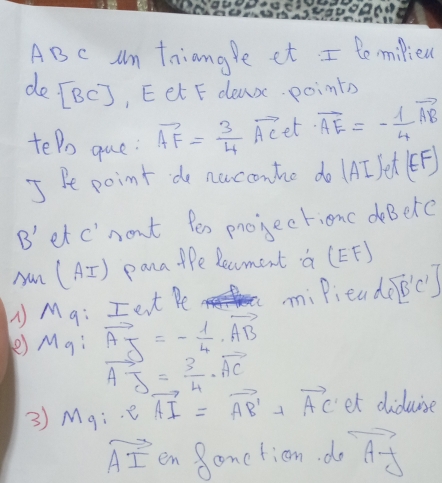 ABC un triangle et I le milieu
de [BC], E et F deux points
tels que: AF = 3/4 AC et AE = -1/4 AB
J le point de rencontre de (AI) et (EF)
B' et C' sont les projectionc de B et C
sur (AI) parallèlement à (EF)
1) Mq: I est le milieu de [B'C']
2) Mq: AJ = -1/4 . AB
AJ = 3/4 . AC
3) Mq: 2 AI = AB' + AC' et diduire
AI en fonction de AJ